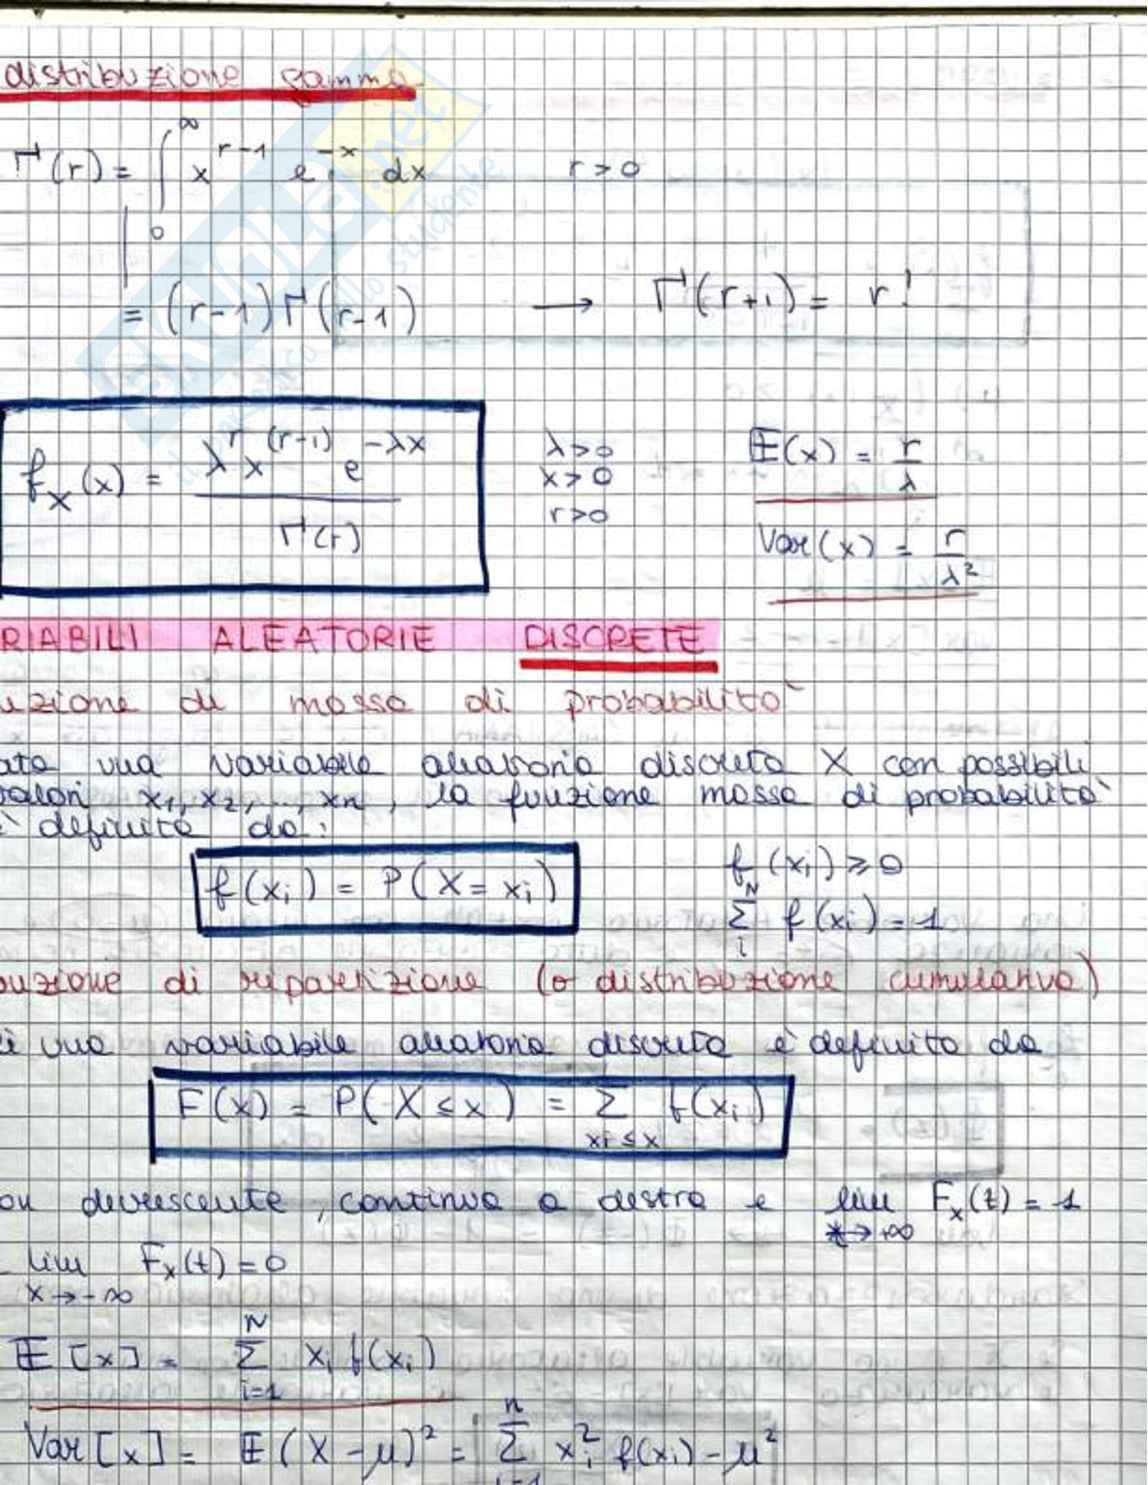 distribuzione gamma
Γ(r) = ∫₀^∞ x^(r-1) e^(-x) dx    r > 0
= (r-1) Γ(r-1) → Γ(r+1) = r!
f_X(x) = λ^r x^(r-1) e^(-λx) / Γ(r)    λ>0 x>0 r>0    E(x) = r/λ
Var(x) = r/λ²
RIABILI ALEATORIE DISCRETE
uzione di massa di probabilità
ata una variabile aleatoria discreta X con possibili
valori x₁, x₂, ..., xn, la funzione massa di probabilità
è definita da:
f(xᵢ) = P(X = xᵢ)    f(xᵢ) ≥ 0
Σᵢ^N f(xᵢ) = 1
buzione di ripartizione (o distribuzione cumulativa)
i una variabile aleatoria discreta è definita da
F(x) = P(X ≤ x) = Σ_{xi ≤ x} f(xᵢ)
on decrescente, continua a destra e lim →+∞ F_x(t) = 1
lim x→-∞ F_x(t) = 0
E[x] = Σ_{i=1}^N xᵢ f(xᵢ)
Var[x] = E(X-μ)² = Σ_{i=1}^n xᵢ² f(xᵢ) - μ²
SKUOLA.net